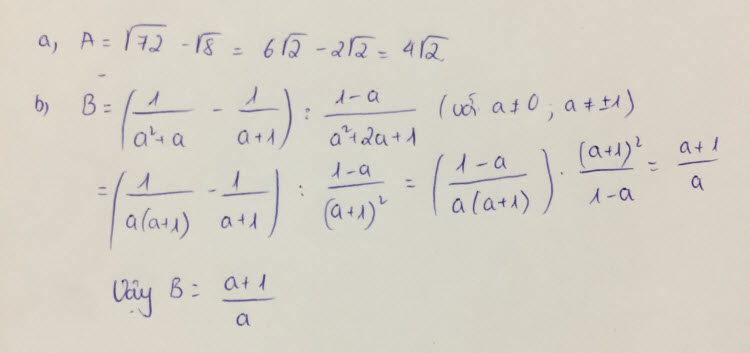 a, A = √72 - √8 = 6√2 - 2√2 = 4√2
b) B = (1/(a²+a) - 1/(a+1)) : (1-a)/(a²+2a+1) (với a ≠ 0 ; a ≠ ±1)
= (1/(a(a+1)) - 1/(a+1)) : (1-a)/(a+1)² = ((1-a)/(a(a+1))) . (a+1)²/(1-a) = (a+1)/a
Vậy B = (a+1)/a